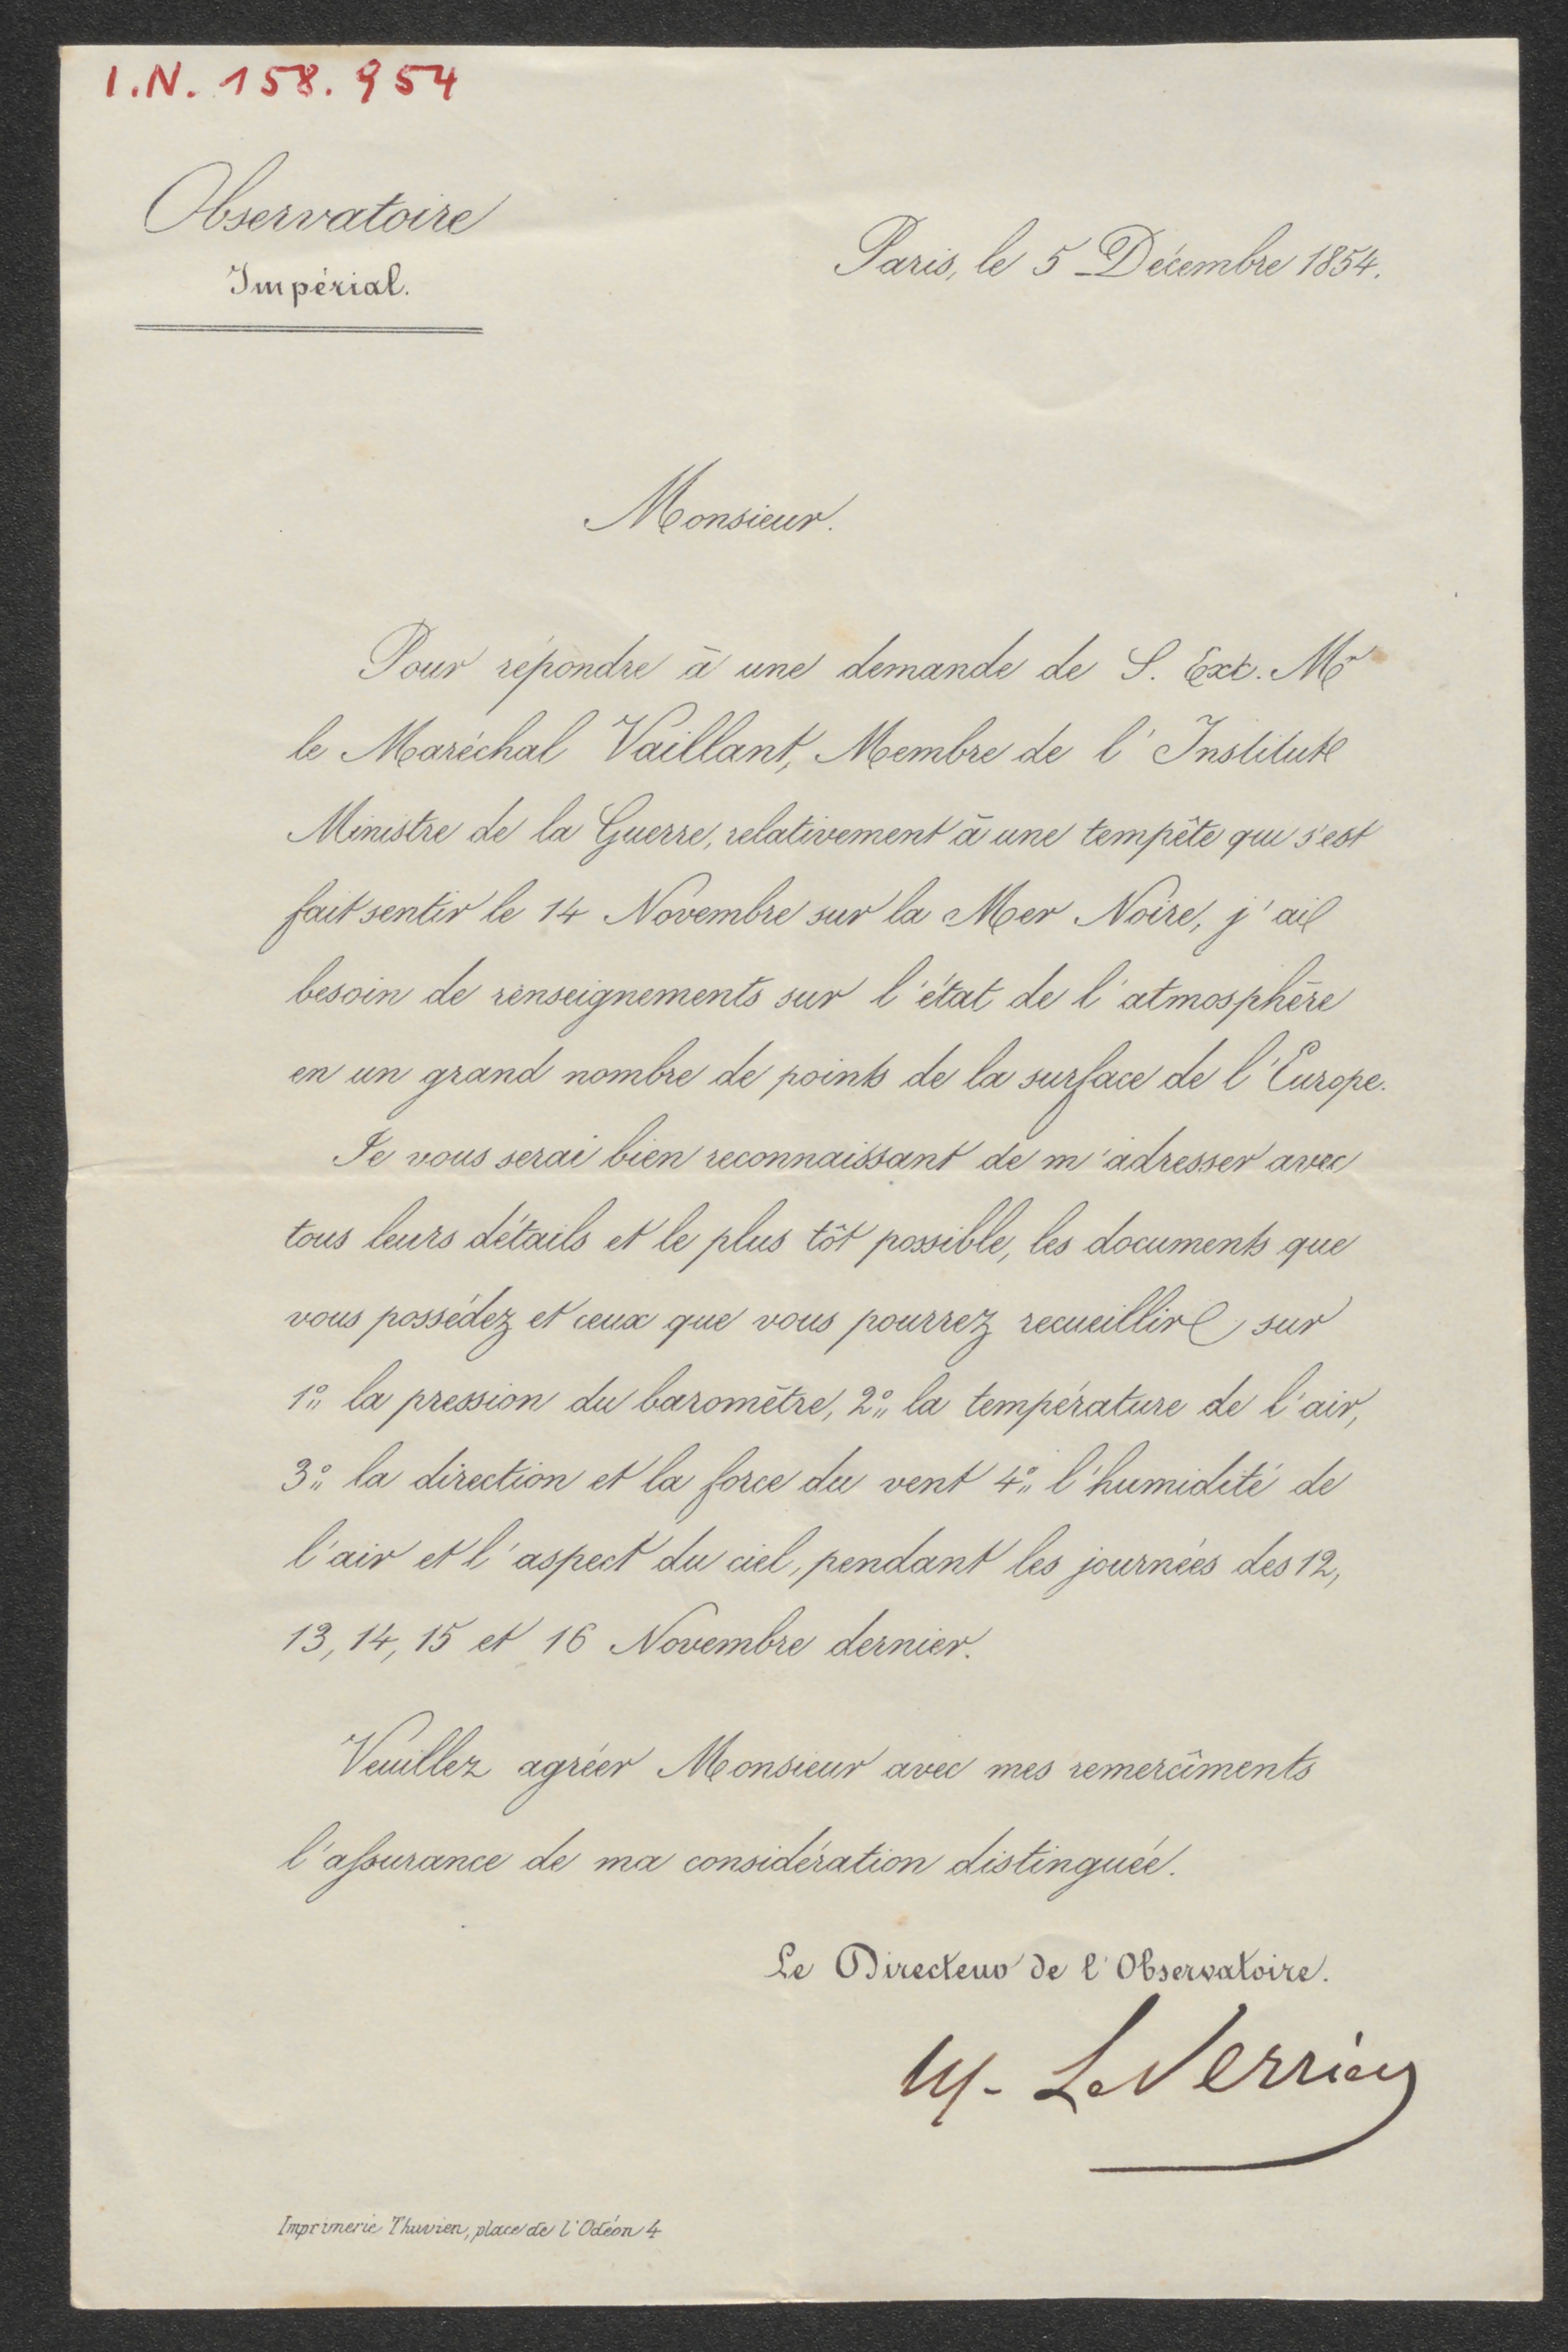 I.N. 158.954
Observatoire
Impérial.
Paris, le 5 Décembre 1854.
Monsieur.
Pour répondre à une demande de S. Exc. Mr
le Maréchal Vaillant, Membre de l'Institut
Ministre de la Guerre, relativement à une tempête qui s'est
fait sentir le 14 Novembre sur la Mer Noire, j'ai
besoin de renseignements sur l'état de l'atmosphère
en un grand nombre de points de la surface de l'Europe.
Je vous serai bien reconnaissant de m'adresser avec
tous leurs détails et le plus tôt possible, les documents que
vous possédez et ceux que vous pourrez recueillir sur
1º la pression du baromètre, 2º la température de l'air,
3º la direction et la force du vent 4º l'humidité de
l'air et l'aspect du ciel, pendant les journées des 12,
13, 14, 15 et 16 Novembre dernier.
Veuillez agréer Monsieur avec mes remercîments
l'assurance de ma considération distinguée.
Le Directeur de l'Observatoire.
LeVerrier
Imprimerie Thuvien, place de l'Odéon 4